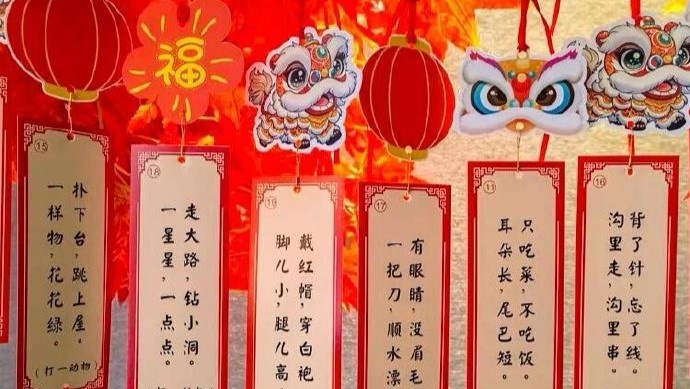 福
15
一样物,花花绿。
扑下台,跳上屋。
(打一动物)
18
一星星,一点点。
走大路,钻小洞。
19
脚儿小,腿儿高
戴红帽,穿白袍
17
一把刀,顺水漂
有眼睛,没眉毛
11
耳朵长,尾巴短。
只吃菜,不吃饭。
16
沟里走,沟里串。
背了针,忘了线。